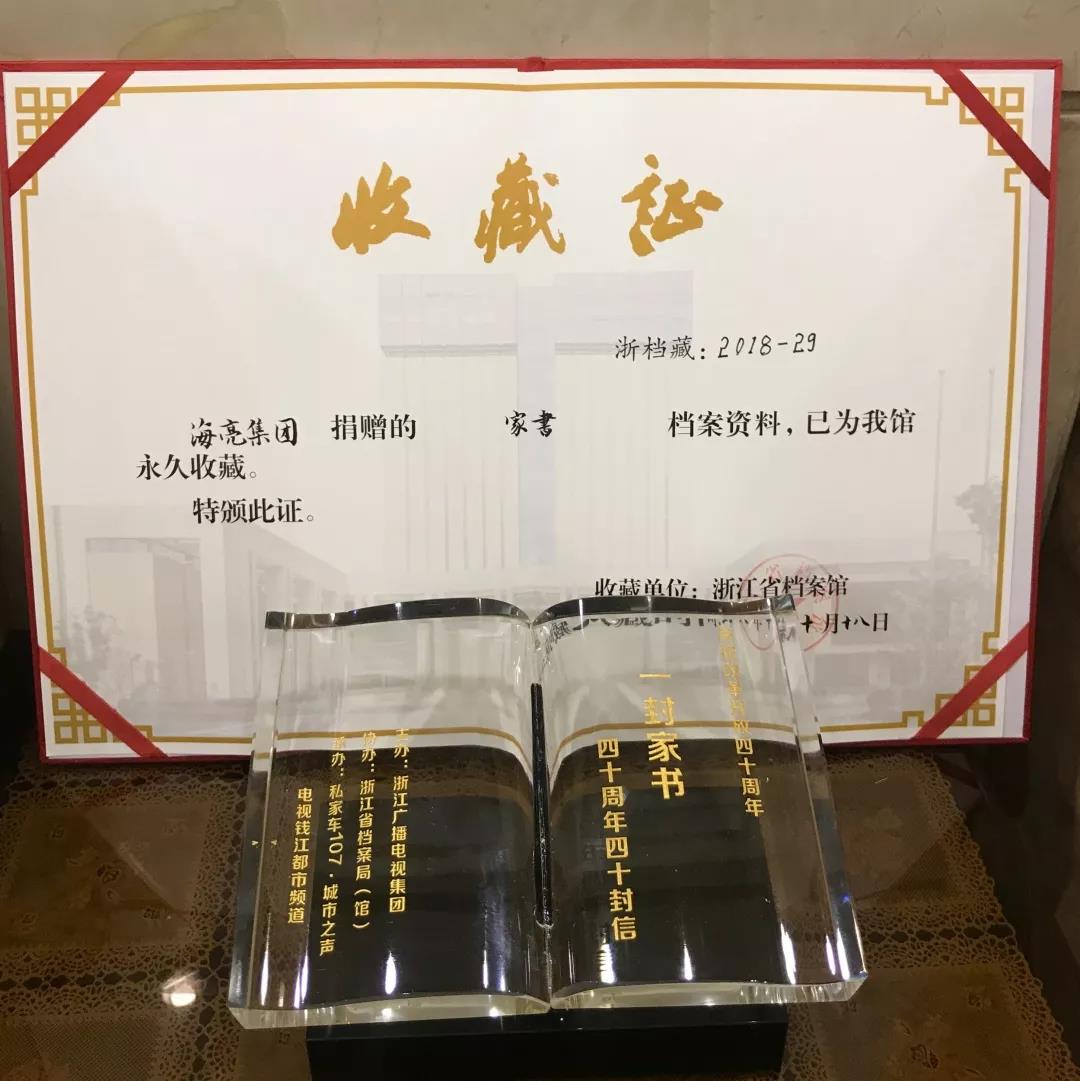 收藏证
浙档藏：2018-29
海亮集团 捐赠的 家书 档案资料，已为我馆
永久收藏。
特颁此证。
收藏单位：浙江省档案馆
十月十八日
改革开放四十周年
一封家书
四十周年四十封信
主办：浙江广播电视集团
协办：浙江省档案局（馆）
承办：私家车107·城市之声
电视钱江都市频道